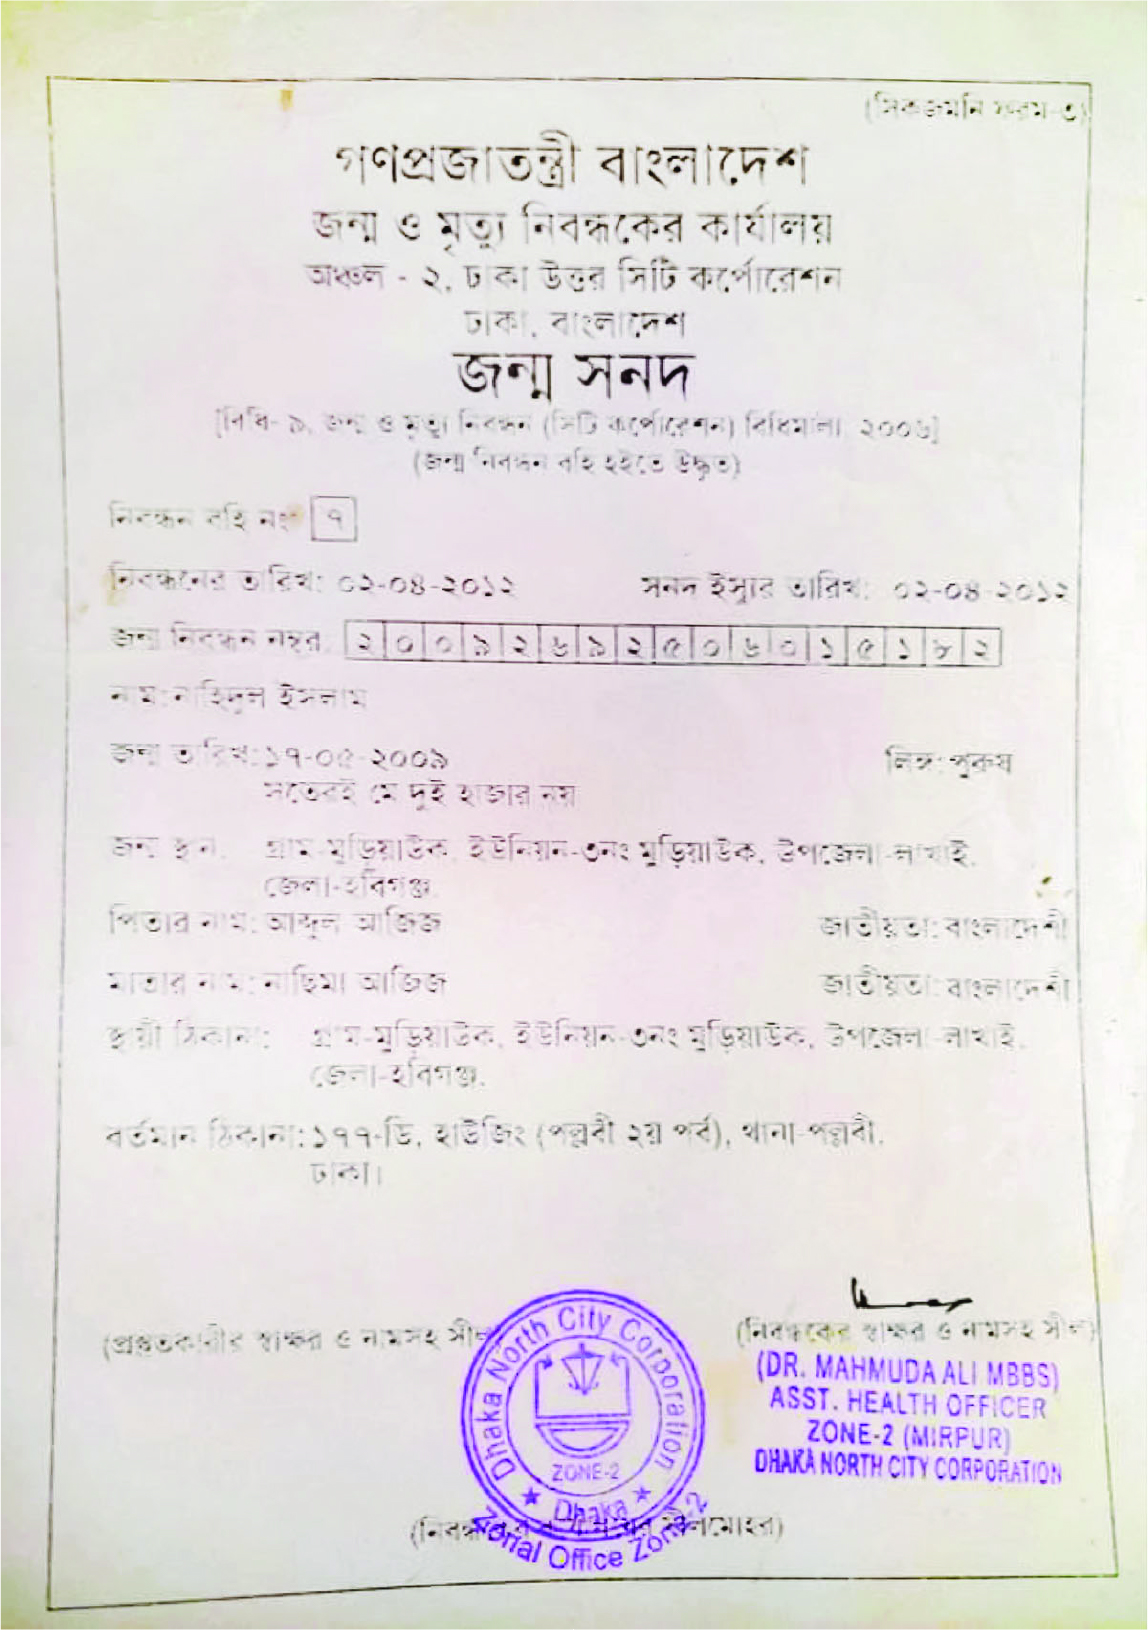 (সিকজমনি ফরম-৩)
গণপ্রজাতন্ত্রী বাংলাদেশ
জন্ম ও মৃত্যু নিবন্ধকের কার্যালয়
অঞ্চল - ২, ঢাকা উত্তর সিটি কর্পোরেশন
ঢাকা, বাংলাদেশ
জন্ম সনদ
[বিধি- ৯, জন্ম ও মৃত্যু নিবন্ধন (সিটি কর্পোরেশন) বিধিমালা, ২০০৬]
(জন্ম নিবন্ধন বহি হইতে উদ্ধৃত)
নিবন্ধন বহি নং ৭
নিবন্ধনের তারিখ: ০২-০৪-২০১২ সনদ ইস্যুর তারিখ: ০২-০৪-২০১২
জন্ম নিবন্ধন নম্বর: ২০০৯২৬৯২৫০৬০১৫১৮২
নাম:নাহিদুল ইসলাম
জন্ম তারিখ:১৭-০৫-২০০৯ লিঙ্গ: পুরুষ
সতেরই মে দুই হাজার নয়
জন্ম স্থান: গ্রাম-মুড়িয়াউক, ইউনিয়ন-৩নং মুড়িয়াউক, উপজেলা-লাখাই,
জেলা-হবিগঞ্জ.
পিতার নাম: আব্দুল আজিজ জাতীয়তা: বাংলাদেশী
মাতার নাম: নাছিমা আজিজ জাতীয়তা: বাংলাদেশী
স্থায়ী ঠিকানা: গ্রাম-মুড়িয়াউক, ইউনিয়ন-৩নং মুড়িয়াউক, উপজেলা-লাখাই,
জেলা-হবিগঞ্জ.
বর্তমান ঠিকানা:১৭৭-ডি, হাউজিং (পল্লবী ২য় পর্ব), থানা-পল্লবী,
ঢাকা।
(প্রস্তুতকারীর স্বাক্ষর ও নামসহ সীল) (নিবন্ধকের স্বাক্ষর ও নামসহ সীল)
(DR. MAHMUDA ALI MBBS)
ASST. HEALTH OFFICER
ZONE-2 (MIRPUR)
DHAKA NORTH CITY CORPORATION
Dhaka North City Corporation
ZONE-2
Dhaka
Zonal Office Zone-2
সীলমোহর)